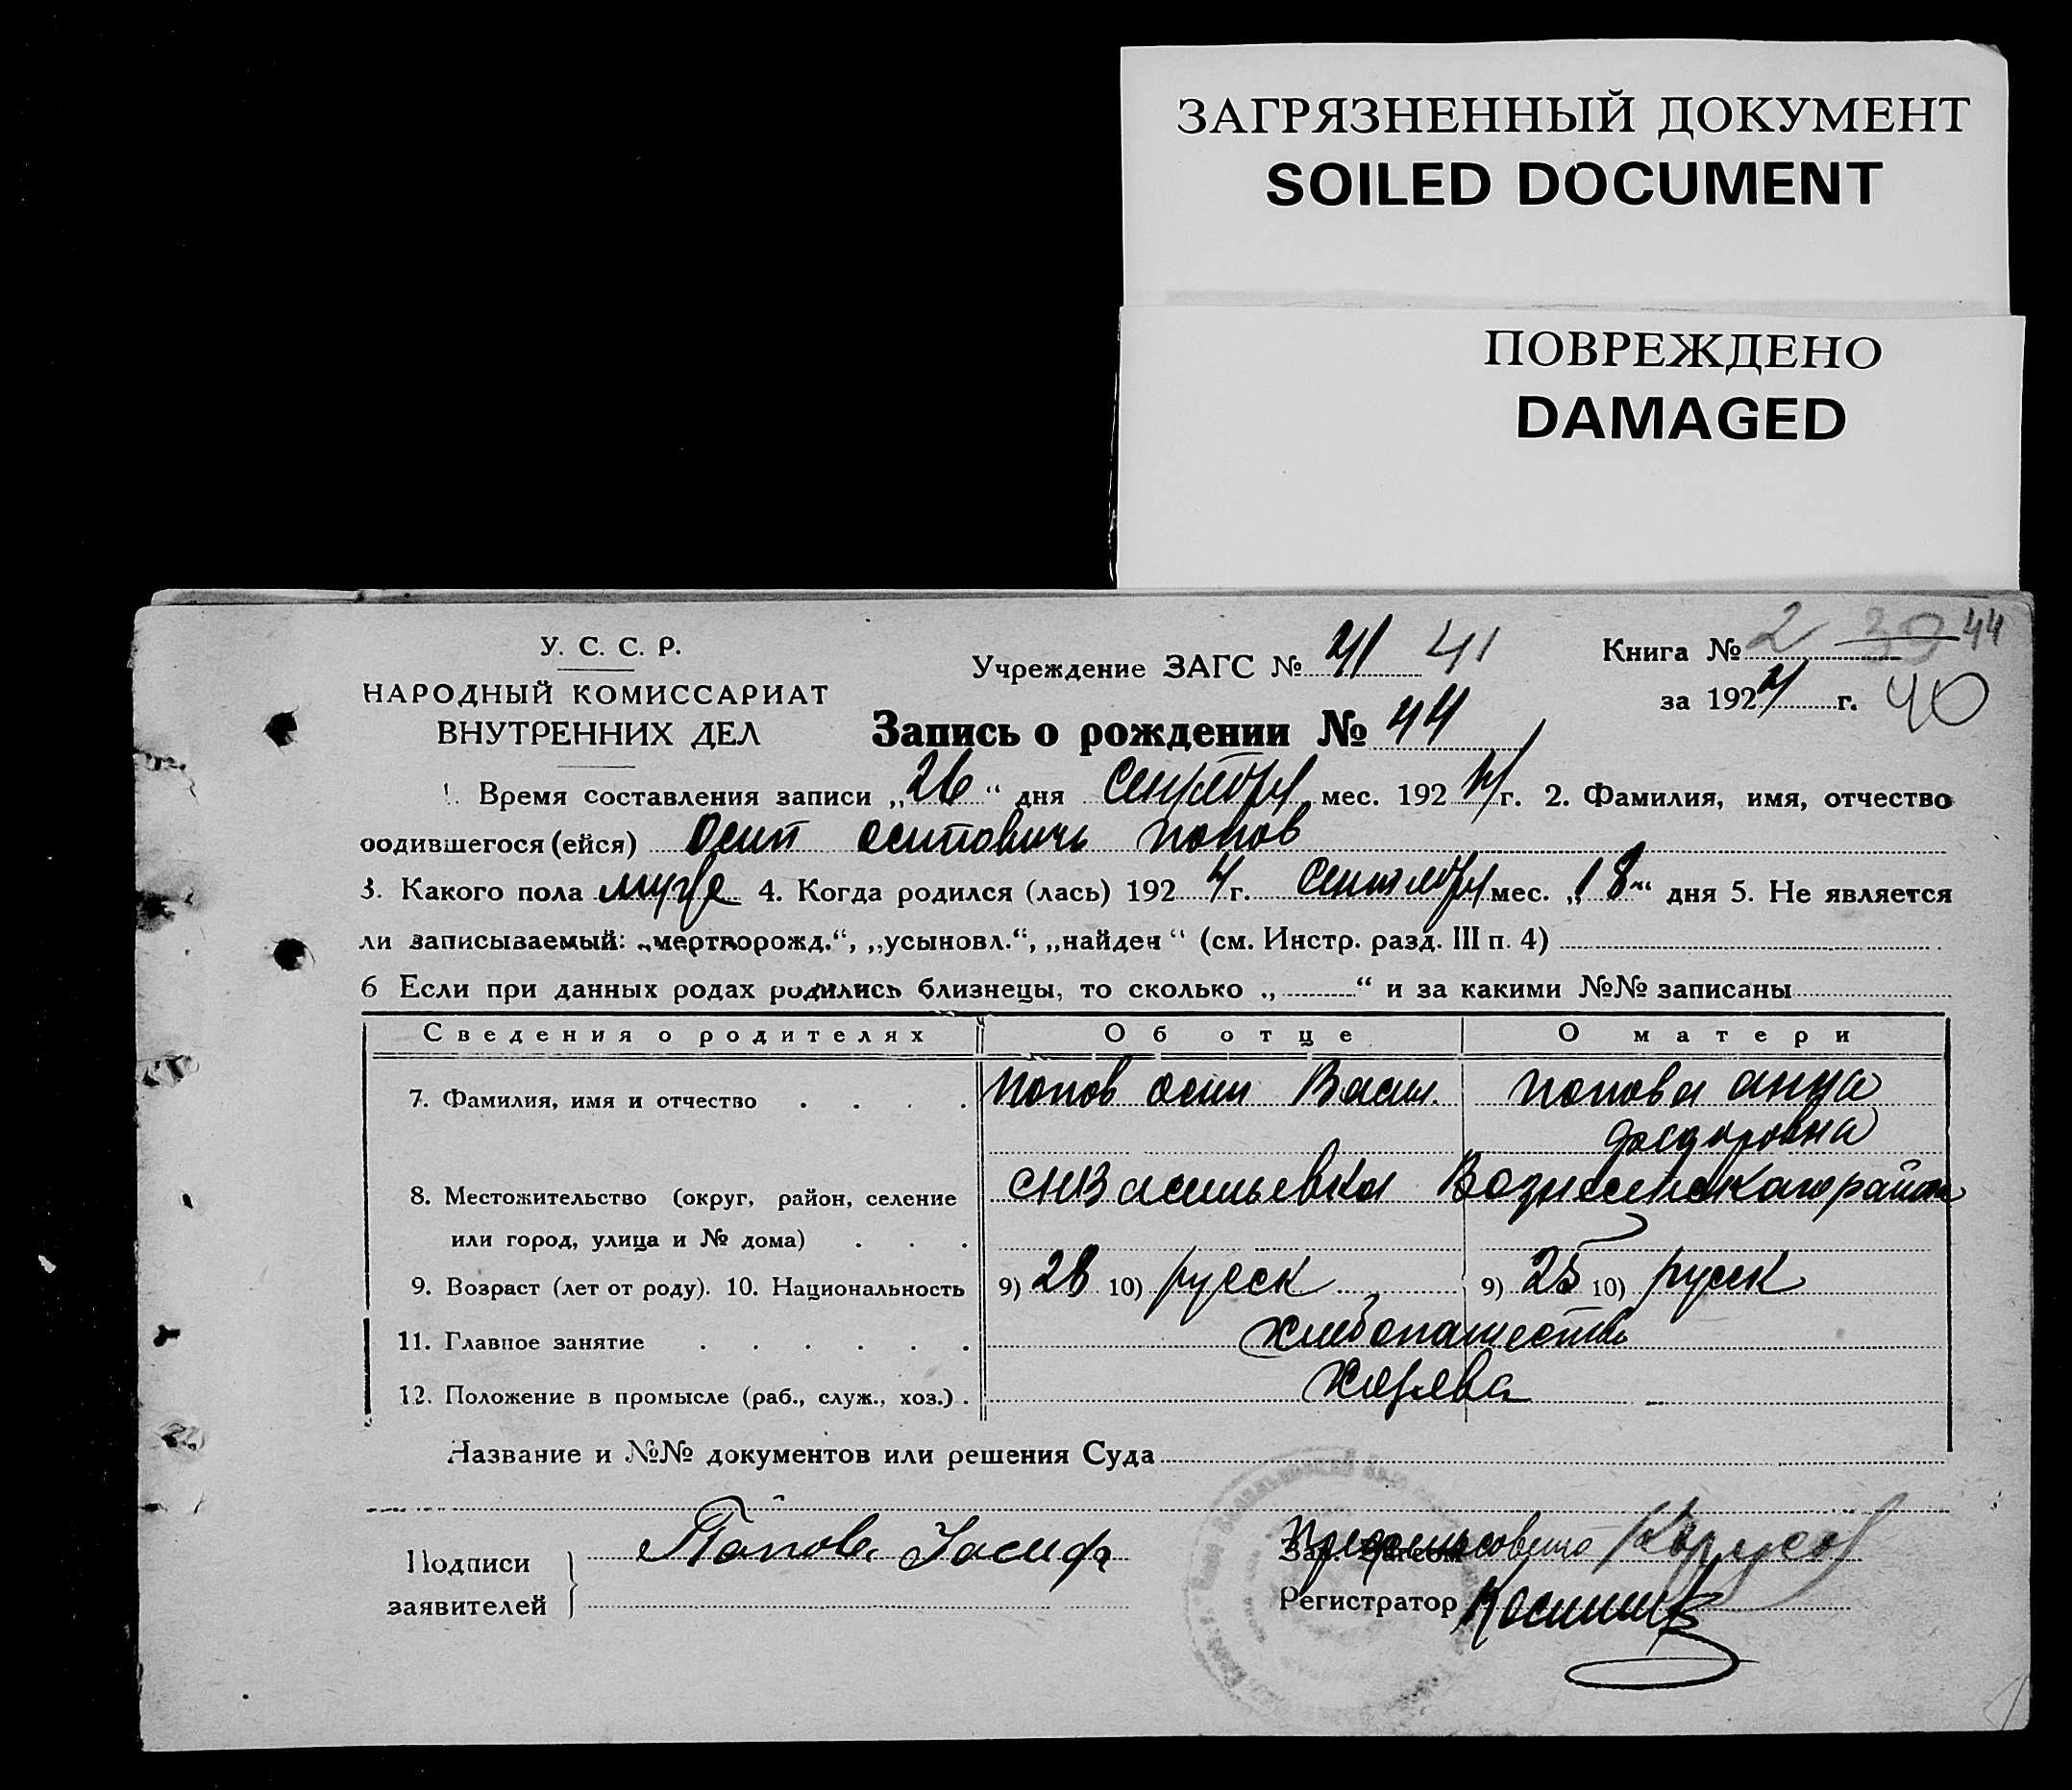 ЗАГРЯЗНЕННЫЙ ДОКУМЕНТ
SOILED DOCUMENT
ПОВРЕЖДЕНО
DAMAGED
У. С. С. Р.
НАРОДНЫЙ КОМИССАРИАТ
ВНУТРЕННИХ ДЕЛ
Учреждение ЗАГС № 41 41
Книга № 2 39 44
за 1924 г. 40
Запись о рождении № 44
1. Время составления записи „26“ дня Сентября мес. 1924 г. 2. Фамилия, имя, отчество
родившегося (ейся) Осип осиповичь попов
3. Какого пола муже 4. Когда родился (лась) 1924 г. Сентября мес. „18“ дня 5. Не является
ли записываемый: „мертворожд.“, „усыновл.“, „найден“ (см. Инстр. разд. III п. 4)
6 Если при данных родах родились близнецы, то сколько „ “ и за какими №№ записаны
Сведения о родителях Об отце О матери
7. Фамилия, имя и отчество попов осип Васил. попова анна
федоровна
8. Местожительство (округ, район, селение Васильевка Вознесенскаго района
или город, улица и № дома)
9. Возраст (лет от роду). 10. Национальность 9) 28 10) русск 9) 25 10) русск
11. Главное занятие хлебопашество
12. Положение в промысле (раб., служ., хоз.)
Название и №№ документов или решения Суда
Подписи Попов Иосиф Предсельсовета
заявителей Регистратор